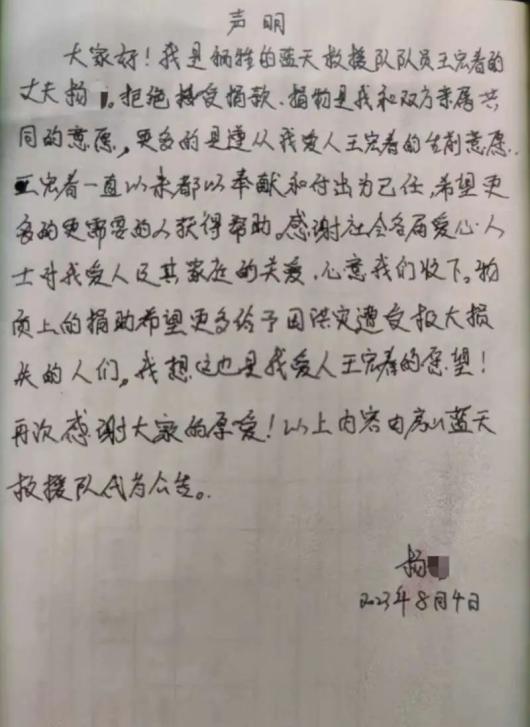 声明
大家好！我是牺牲的蓝天救援队队员王宏春的
丈夫杨 。拒绝接受捐款、捐物是我和双方亲属共
同的意愿，更多的是遵从我爱人王宏春的生前意愿.
王宏春一直以来都以奉献和付出为己任，希望更
多的更需要的人获得帮助。感谢社会各届爱心人
士对我爱人及其家庭的关爱，心意我们收下。物
质上的捐助希望更多给予因洪灾遭受极大损
失的人们。我想这也是我爱人王宏春的愿望！
再次感谢大家的厚爱！以上内容由房山蓝天
救援队代为公告。
杨
2023年8月4日